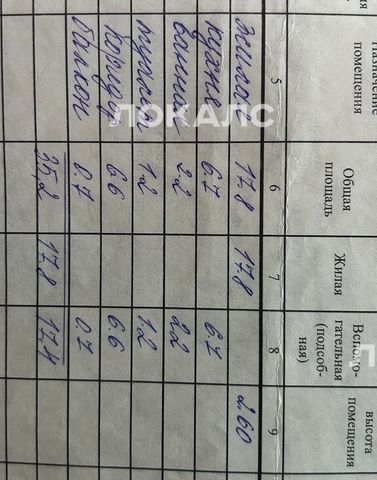 Назначение помещения
Общая площадь
Жилая
Вспомо-гательная (подсоб-ная)
высота помещения
5 6 7 8 9
жилое 17.8 17.8 2.60
кухне 6.7 6.7
ванная 2.2 2.2
туалет 1.2 1.2
коридор 6.6 6.6
балкон 0.7 0.7
35,2 17.8 17,4
ЛОКАЛС